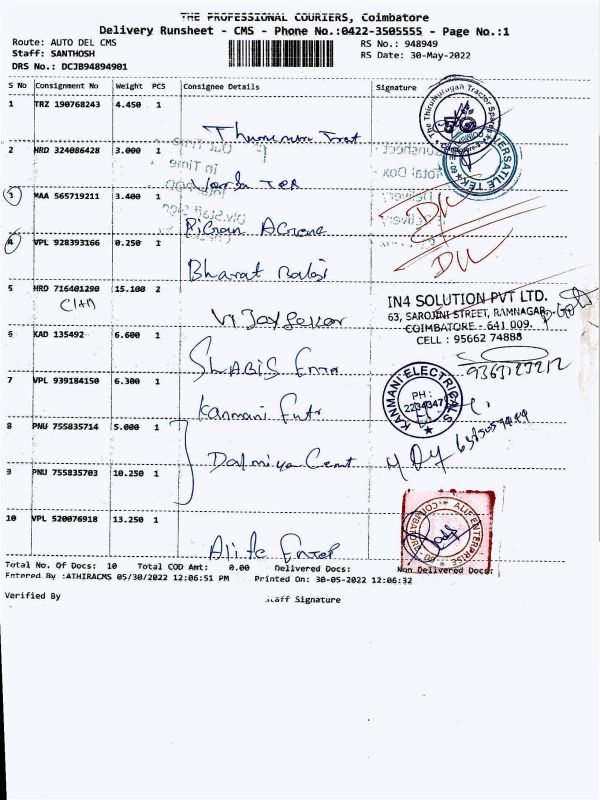 THE PROFESSIONAL COURIERS, Coimbatore
Delivery Runsheet - CMS - Phone No.:0422-3505555 - Page No.:1
Route: AUTO DEL CMS
RS No.: 948949
Staff: SANTHOSH
RS Date: 30-May-2022
DRS No.: DCJB94894901
S No Consignment No Weight PCS Consignee Details Signature
1 TRZ 190768243 4.450 1
The Thirumurugan Tractor Spares
2 HRD 324086428 3.000 1
VERSATILE TEK
3 MAA 565719211 3.400 1
DL
4 VPL 928393166 0.250 1 Bharat Balaji
DL
5 HRD 716401290 15.100 2 Vijaysekar
IN4 SOLUTION PVT LTD.
63, SAROJINI STREET, RAMNAGAR,
COIMBATORE - 641 009.
CELL : 95662 74888
6 KAD 135492 6.600 1 SHABIS Enter
7 VPL 939184150 6.300 1 Kanmani Entr
KANMANI ELECTRICALS
PH :
2234347
8 PNU 755835714 5.000 1
Dalmiya Cemt
9 PNU 755835703 10.250 1
10 VPL 520076918 13.250 1
ALIF ENTERPRISE
COIMBATORE
Total No. Of Docs: 10 Total COD Amt: 0.00 Delivered Docs: Non Delivered Docs:
Entered By :ATHIRACMS 05/30/2022 12:06:51 PM Printed On: 30-05-2022 12:06:32
Verified By
Staff Signature